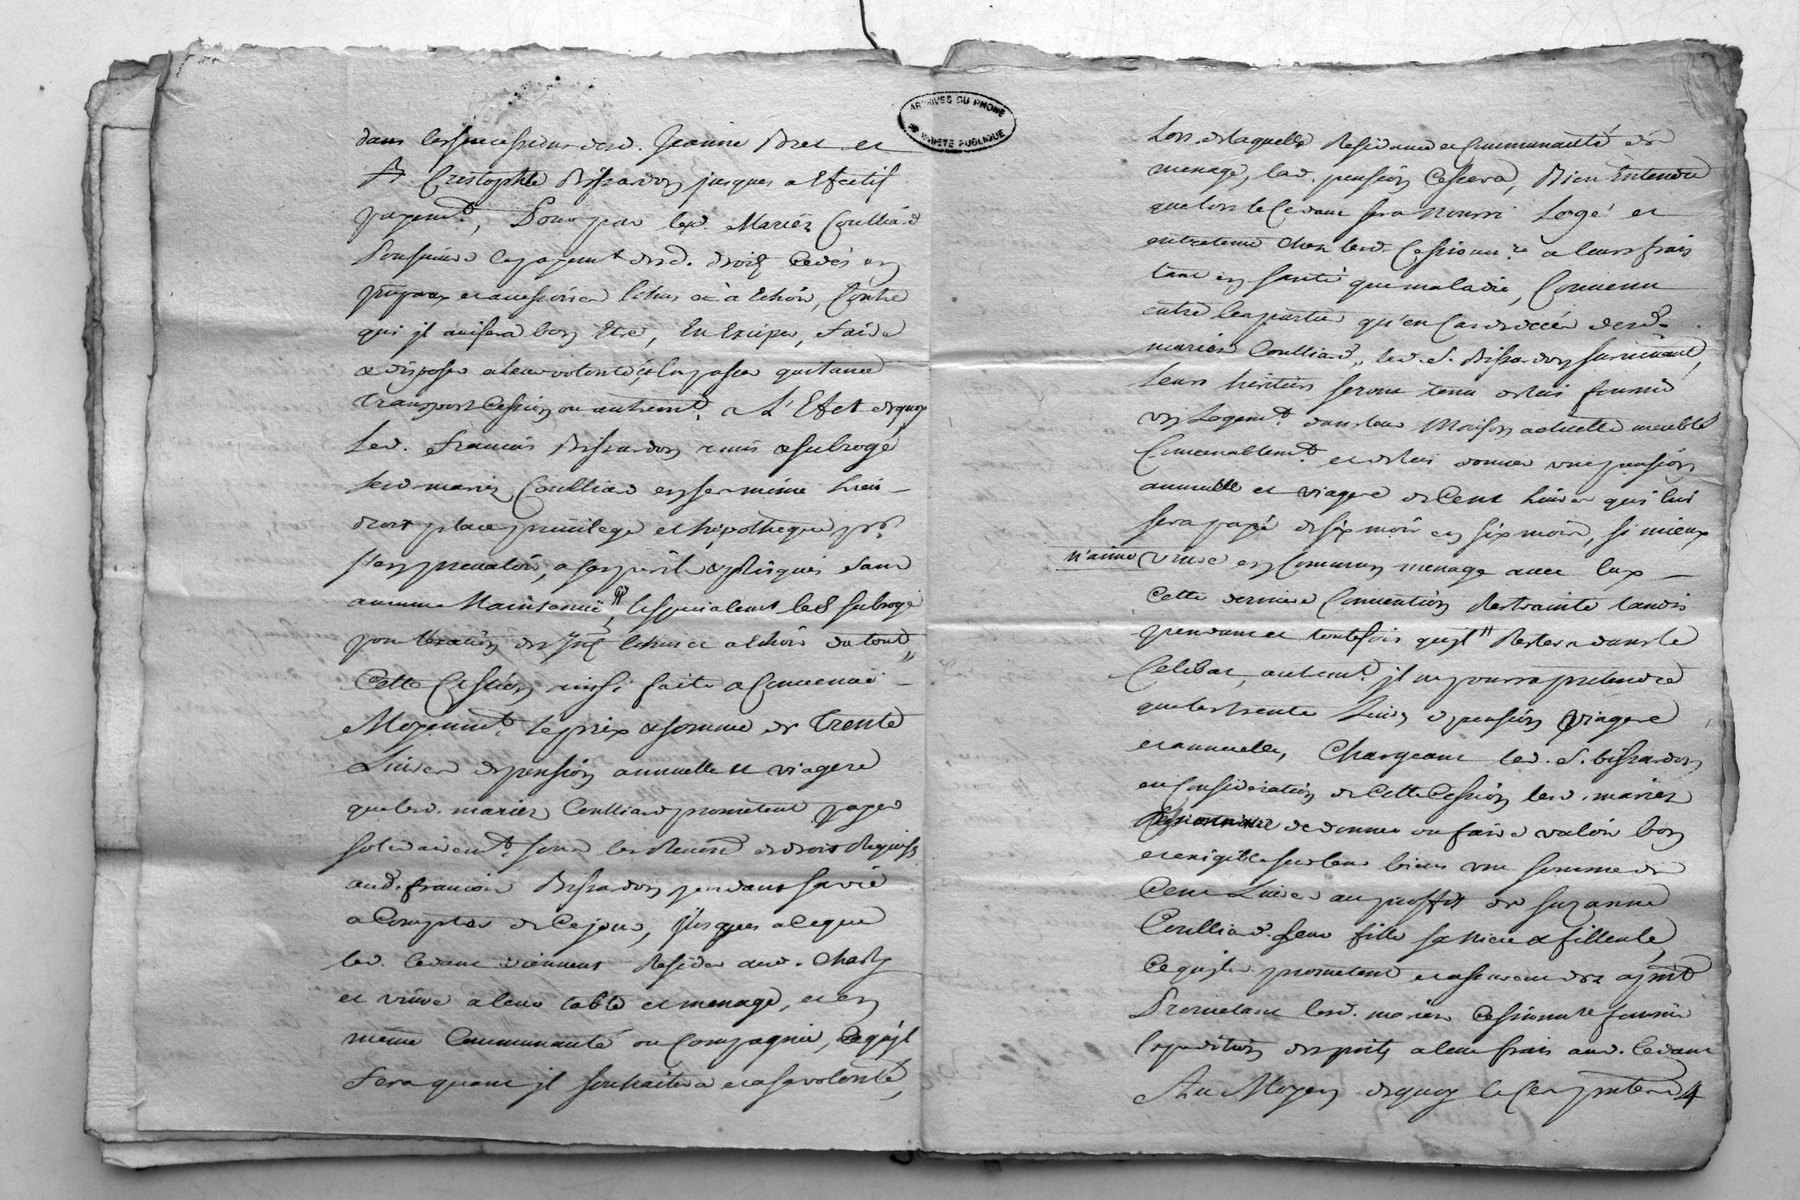 ARCHIVES DU RHONE
PROPRIÉTÉ PUBLIQUE
dans les successions desd. Jeanne Bret et
Cristophle Bissardon jusques a Efectif
payemt, Pour par lesd. Mariez Coulliard
Poursuivre le payemt desd. droits cedés en
principaux et accessoires Echus et a Echoir, Contre
qui jl avisera bon Etre, En Exiger, faire
& disposer a leur volonté, & En passer quitance
transport Cession ou autremt. A L'Efet de quoy
Led. François Bissardon a mis & subrogé
lesd mariez Coulliard en ses même lieu
droit place privilege et hipotheque pr
s'en prevaloir, a ses perils & Risques sans
aucune Maintenue
Cette Cession ainsi faite & Convenüe
Moyennt. le prix & somme de Trente
Livres de pension annuelle et viagere
que lesd. mariez Coulliard promettent payer
solidairemt. sous les Renon et droits Requis
aud. françois Bissardon pendant sa vie
a Compter de Ce jour, jusques a ce que
led. Cedant viennent Resider aud. Charly
et vivre a leur table et menage, et en
même Communauté ou Compagnie, Ce qu'jl
fera quant jl souhaitera et a sa volonté,
Lors de laquelle Residance et Communauté de
menage, lad. pension Cessera, Bien Entendu
que lors le Cedant sera Nourri Logé et
entretenu chez lesd. Cessionnre. a leurs frais
tant en santé que maladie, Convenu
entre les parties qu'en Cas de deces desd.
mariez Coulliard, led. S. Bissardon survivant,
Leurs heritiers seront tenu de lui fournir
un Logemt. dans leur Maison actuelle meublé
Convenablemt. et de lui donner une pension
annuelle et viagere de Cent Livres qui lui
sera payé de six mois en six mois, si mieux
n'aime vivre en Commun menage avec Eux
Cette derniere Convention Restrainte tandis
pendant et toutefois qu'jl Restera dans le
Celibat, autremt. jl ne pourra pretendre
que les trente Livres de pension Viagere
et annuelle, Chargeant led. S. bissardon
en Consideration de Cette Cession lesd. mariez
de donner ou faire valoir bon
et exigible sur leurs biens une somme de
Cent Livres au proffit de Suzanne
Coulliard leur fille sa Niece & filleule,
Ce qu'jls promettent et assurent dez apnt
Promettant lesd. mariez Cessionnre fournir
Expedition des pnts a leurs frais aud. Cedant
Au Moyen de quoy